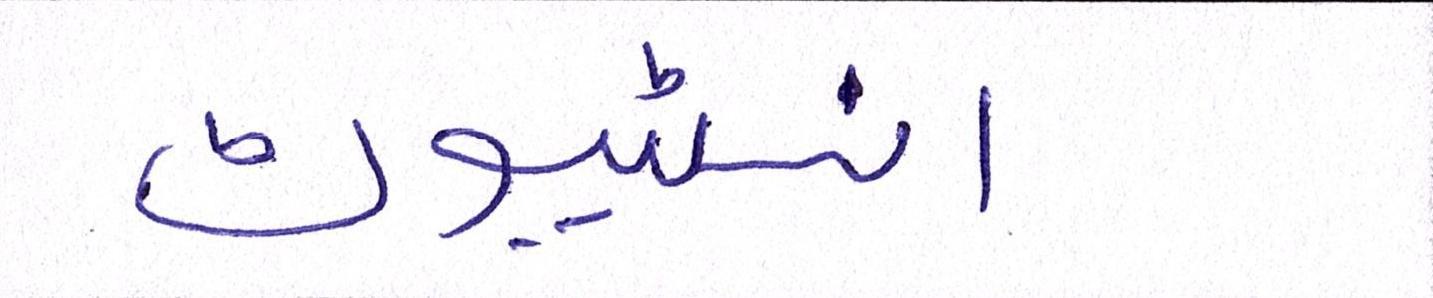 انسٹیوٹ